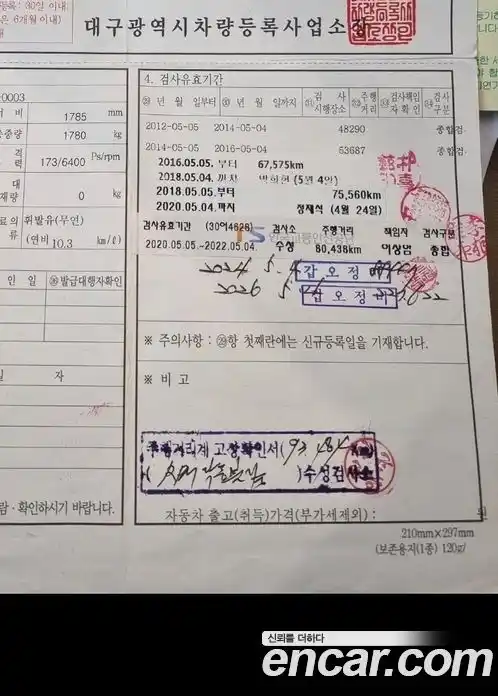 대구광역시차량등록사업소장
록: 30일 이내
은 6개월 이내)
4. 검사유효기간
-0003
비 1785 mm
중량 1780 kg
173/6400 Ps/rpm
0 kg
휘발유(무연)
(연비 10.3 km/ℓ)
년 월 일부터 년 월 일까지 검사 시행장소 주행거리 검사책임자확인 검사구분
2012-05-05 2014-05-04 48290 종합검
2014-05-05 2016-05-04 53687 종합검
2016.05.05. 부터 67,575km
2018.05.04. 까지 박희현 (5월 4일)
2018.05.05.부터 75,560km
2020.05.04.까지 정재석 (4월 24일)
검사유효기간 (30어4626) 검사소 주행거리 책임자 검사구분
2020.05.05.~2022.05.04. 수성 80,438km 이상범 종합
2024 5.4 갑오정비
2026 5 갑오정비
인 일 ㊱발급대행자확인
※ 주의사항 : ㉙항 첫째란에는 신규등록일을 기재합니다.
일 자
※ 비 고
주행거리계 고장확인서(93,484 Km)
)수성검사소
람·확인하시기 바랍니다.
자동차 출고(취득)가격(부가세제외) : 원
210mm×297mm
(보존용지(1종) 120g/
신뢰를 더하다
encar.com